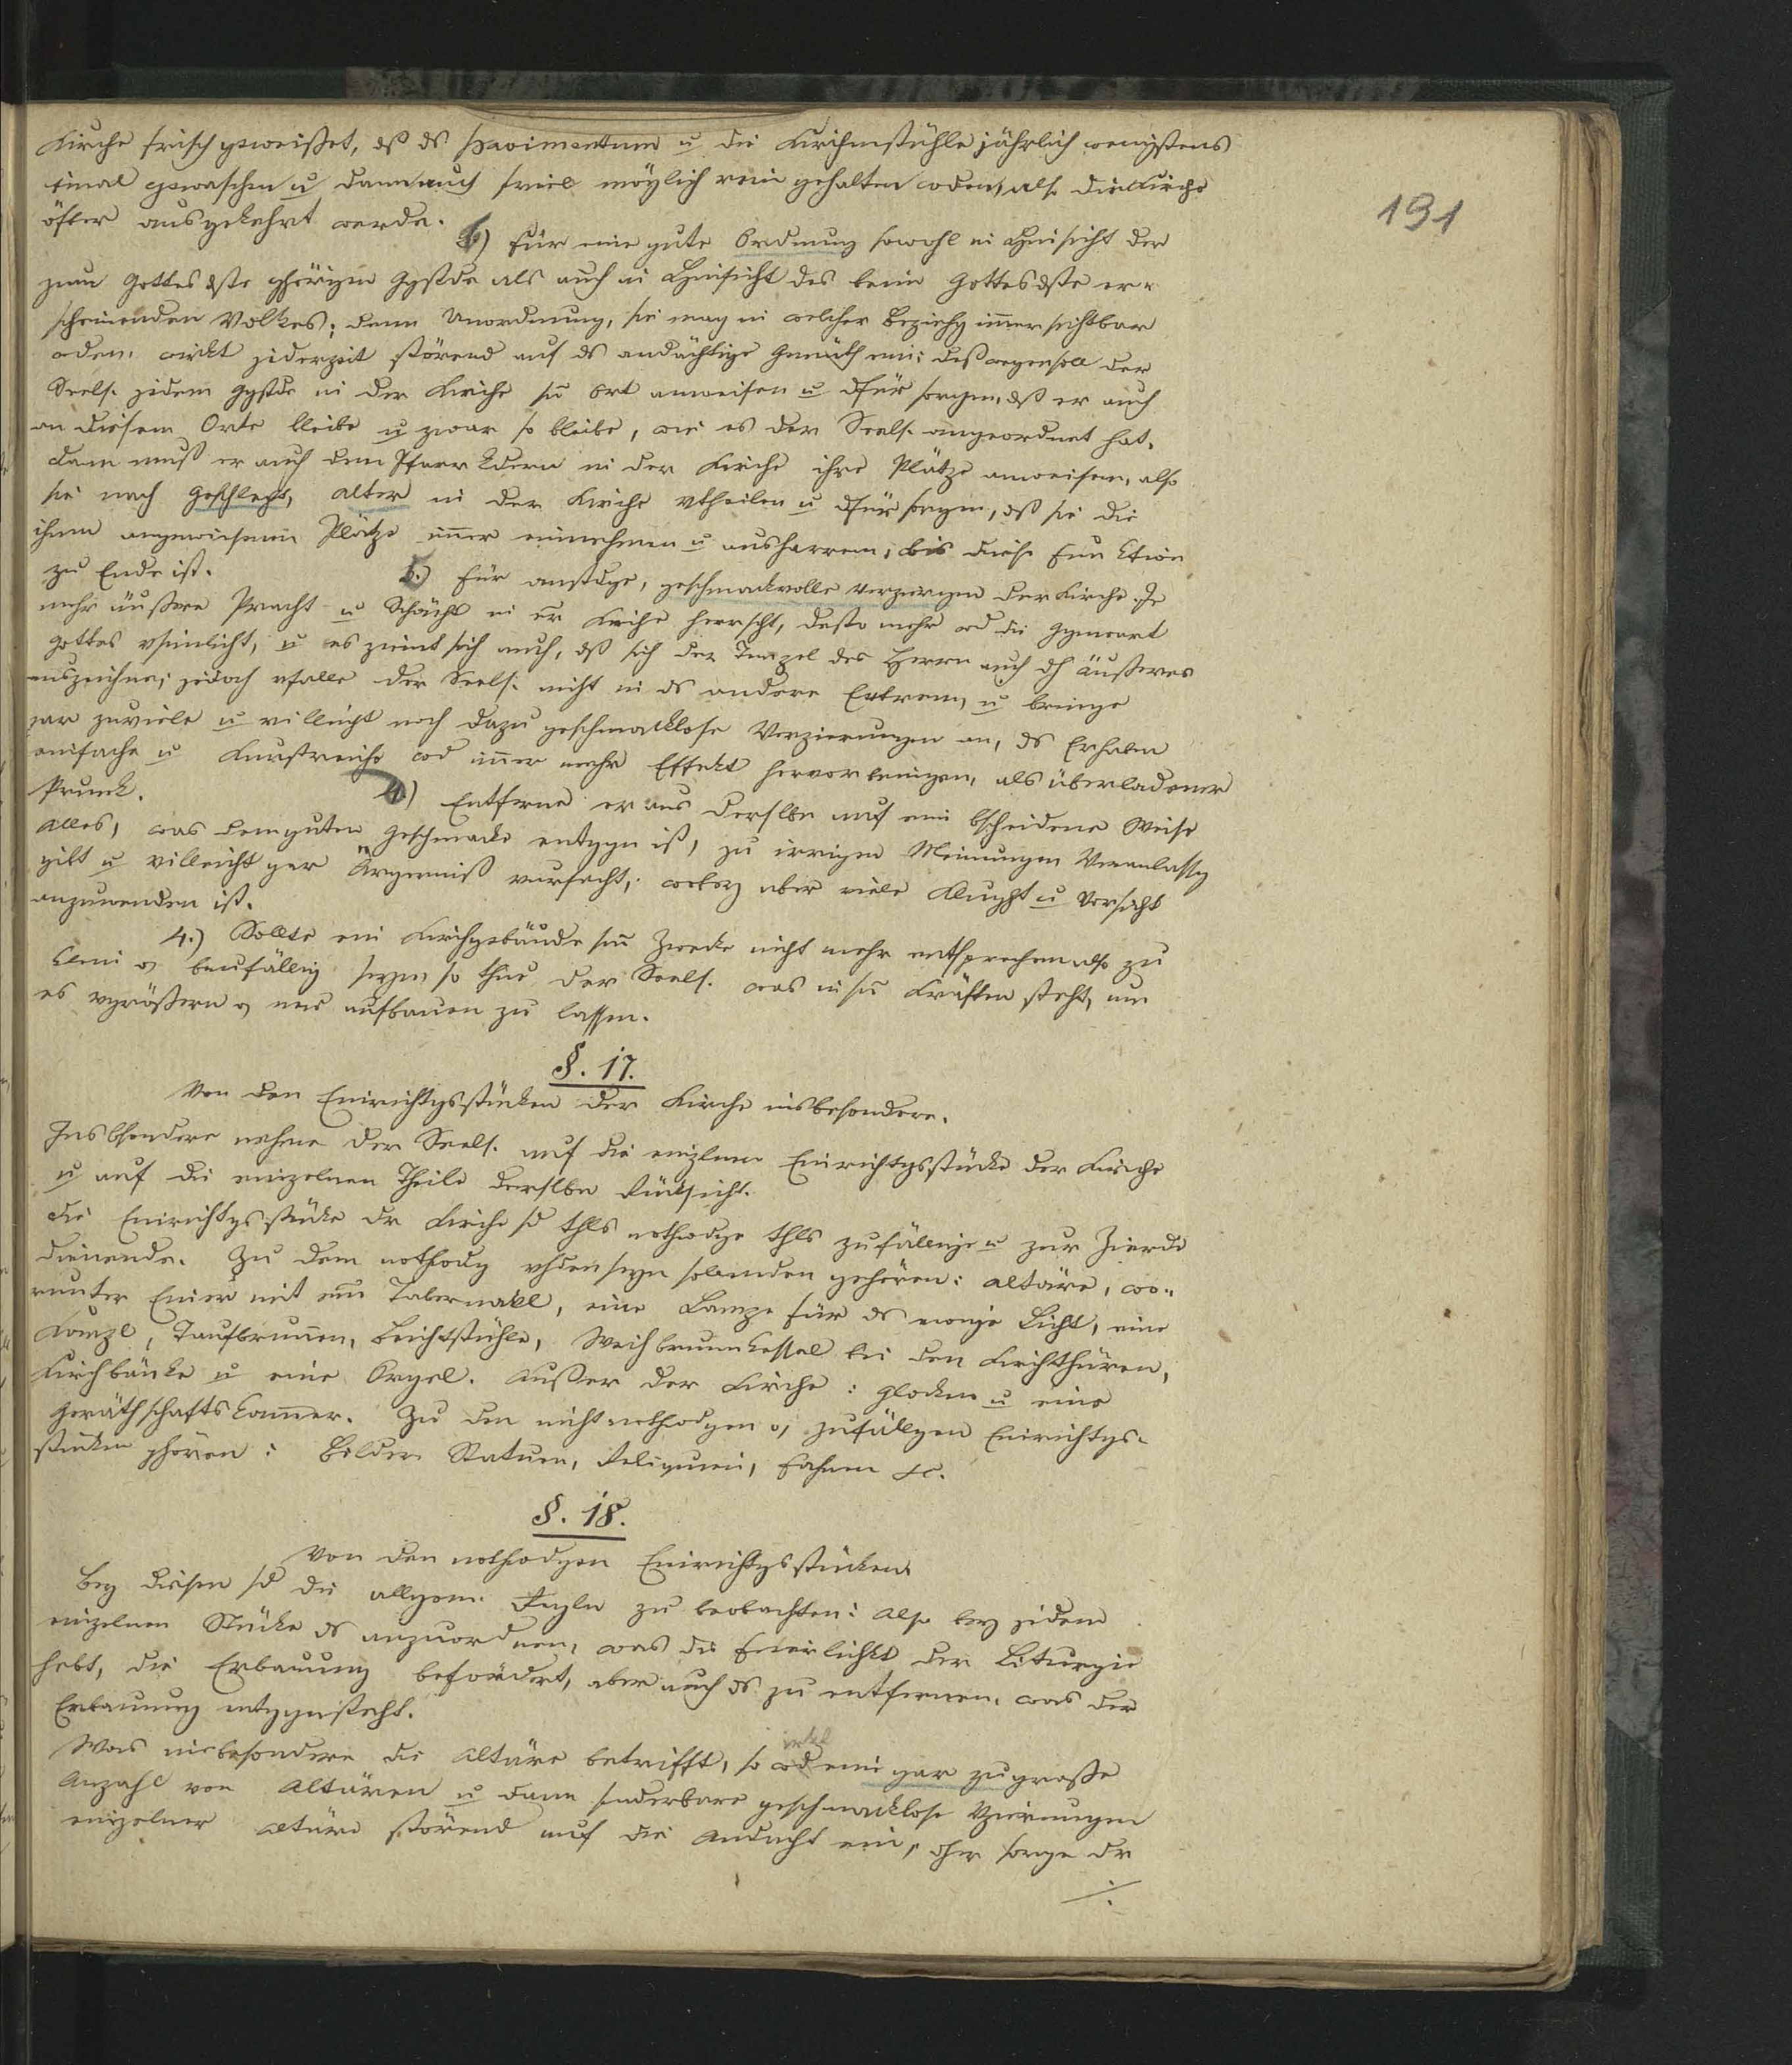 191
Kirche frisch geweißet, dß ds Pavimentum u die Kirchenstühle jährlich wenigstens
einal gewaschen u dann auch soviel möglich rein gehalten wden, also die Kirche
öfter ausgekehrt werde.
b) für eine gute Ordnung sowohl in Hinsicht der
zum Gottesdste ghörigen Ggstde als auch in Hinsicht des beim Gottesdste er-
scheinenden Volkes; denn Unordnung, sie mag in welcher Beziehg iṁer sichtbar
wden, wirkt jederzeit störend auf ds andächtige Gemüth ein; deßwegen soll der
Seels. jedem Ggstde in der Kirche sn Ort anweisen u dfür sorgen, dß er auch
an diesem Orte bleibe u zwar so bleibe, wie es der Seels. angeordnet hat.
Dann muß er auch den Pfarrkdern in der Kirche ihre Plätze anweisen, also
sie nach Geschlecht, Alter in der Kirche vtheilen u dfür sorgen, dß sie die
ihnen angewiesenen Plätze iṁer einnehmen u ausharren, bis diese Funktion
zu Ende ist.
5.) Für anstdge, geschmackvolle Verzierungen der Kirche. Je
mehr äußere Pracht u Schönht in er Kirche herrscht, desto mehr wd die Ggenwart
Gottes vsinnlicht, u es ziemt sich auch, dß sich der Tempel des Herrn auch dh äußeres
auszeichne; jedoch vfalle der Seels. nicht in ds andere Extrem, u bringe
gar zuviele u villeicht noch dazu geschmacklose Verzierungen an, ds Erhaben
einfache u Kunstreiche wd iṁer mehr Effekt hervorbringen, als überladener
Prunk.
4) Entferne er aus derslbn auf eine bscheidene Weise
Alles, was dem guten Geschmacke entggn ist, zu irrigen Meinungen Veranlassg
gibt u villeicht gar Ärgerniß vursacht; wobey aber viele Klught u Vorsicht
anzuwenden ist.
4.) Sollte ein Kirchgebäude sm Zwecke nicht mehr entsprechen also zu
klein o baufällig seyn, so thue der Seels. was in sn Kräften steht, um
es vgrößern o neu aufbauen zu lassen.
§. 17.
Von den Einrichtgsstücken der Kirche insbesondere.
Insbsondere nehme der Seels. auf die einzlnen Einrichtgsstücke der Kirche
u auf die einzelnen Theile derslbn Rücksicht.
Die Einrichtgsstücke dr Kirche sd thls nothwdge thls zufällige u zur Zierde
dienende. Zu den nothwdg vhden seyn sollenden gehören: Altäre, wo-
runter Einer mit em Tabernakl, eine Lampe für ds ewige Licht, eine
Kanzl, Taufbrunen, Beichtstühle, Weihbrunnkessel bei den Kirchthüren,
Kirchbänke u eine Orgel. Außer der Kirche: Glocken u eine
Geräthschaftskaṁer. Zu den nicht nothwdgen o zufällgen Einrichtgs-
stücken ghören: Bilder, Statuen, Reliquien, Fahnen &c.
§. 18.
Von den nothwdgen Einrichtgsstücken.
Bey diesen sd die allgem. Regln zu beobachten: Also bey jedem
einzelnen Stücke ds anzuordnen, was die Feierlichkt der Liturgie
hebt, die Erbauung befördert, aber auch ds zu entfernen, was der
Erbauung entggnsteht.
Was insbesondere die Altäre betrifft, so wd eine gar zu große
Anzahl von Altären u dann sonderbare geschmacklose Vzierungen
einzelner Altäre störend auf die Andacht ein, dher sorge dr